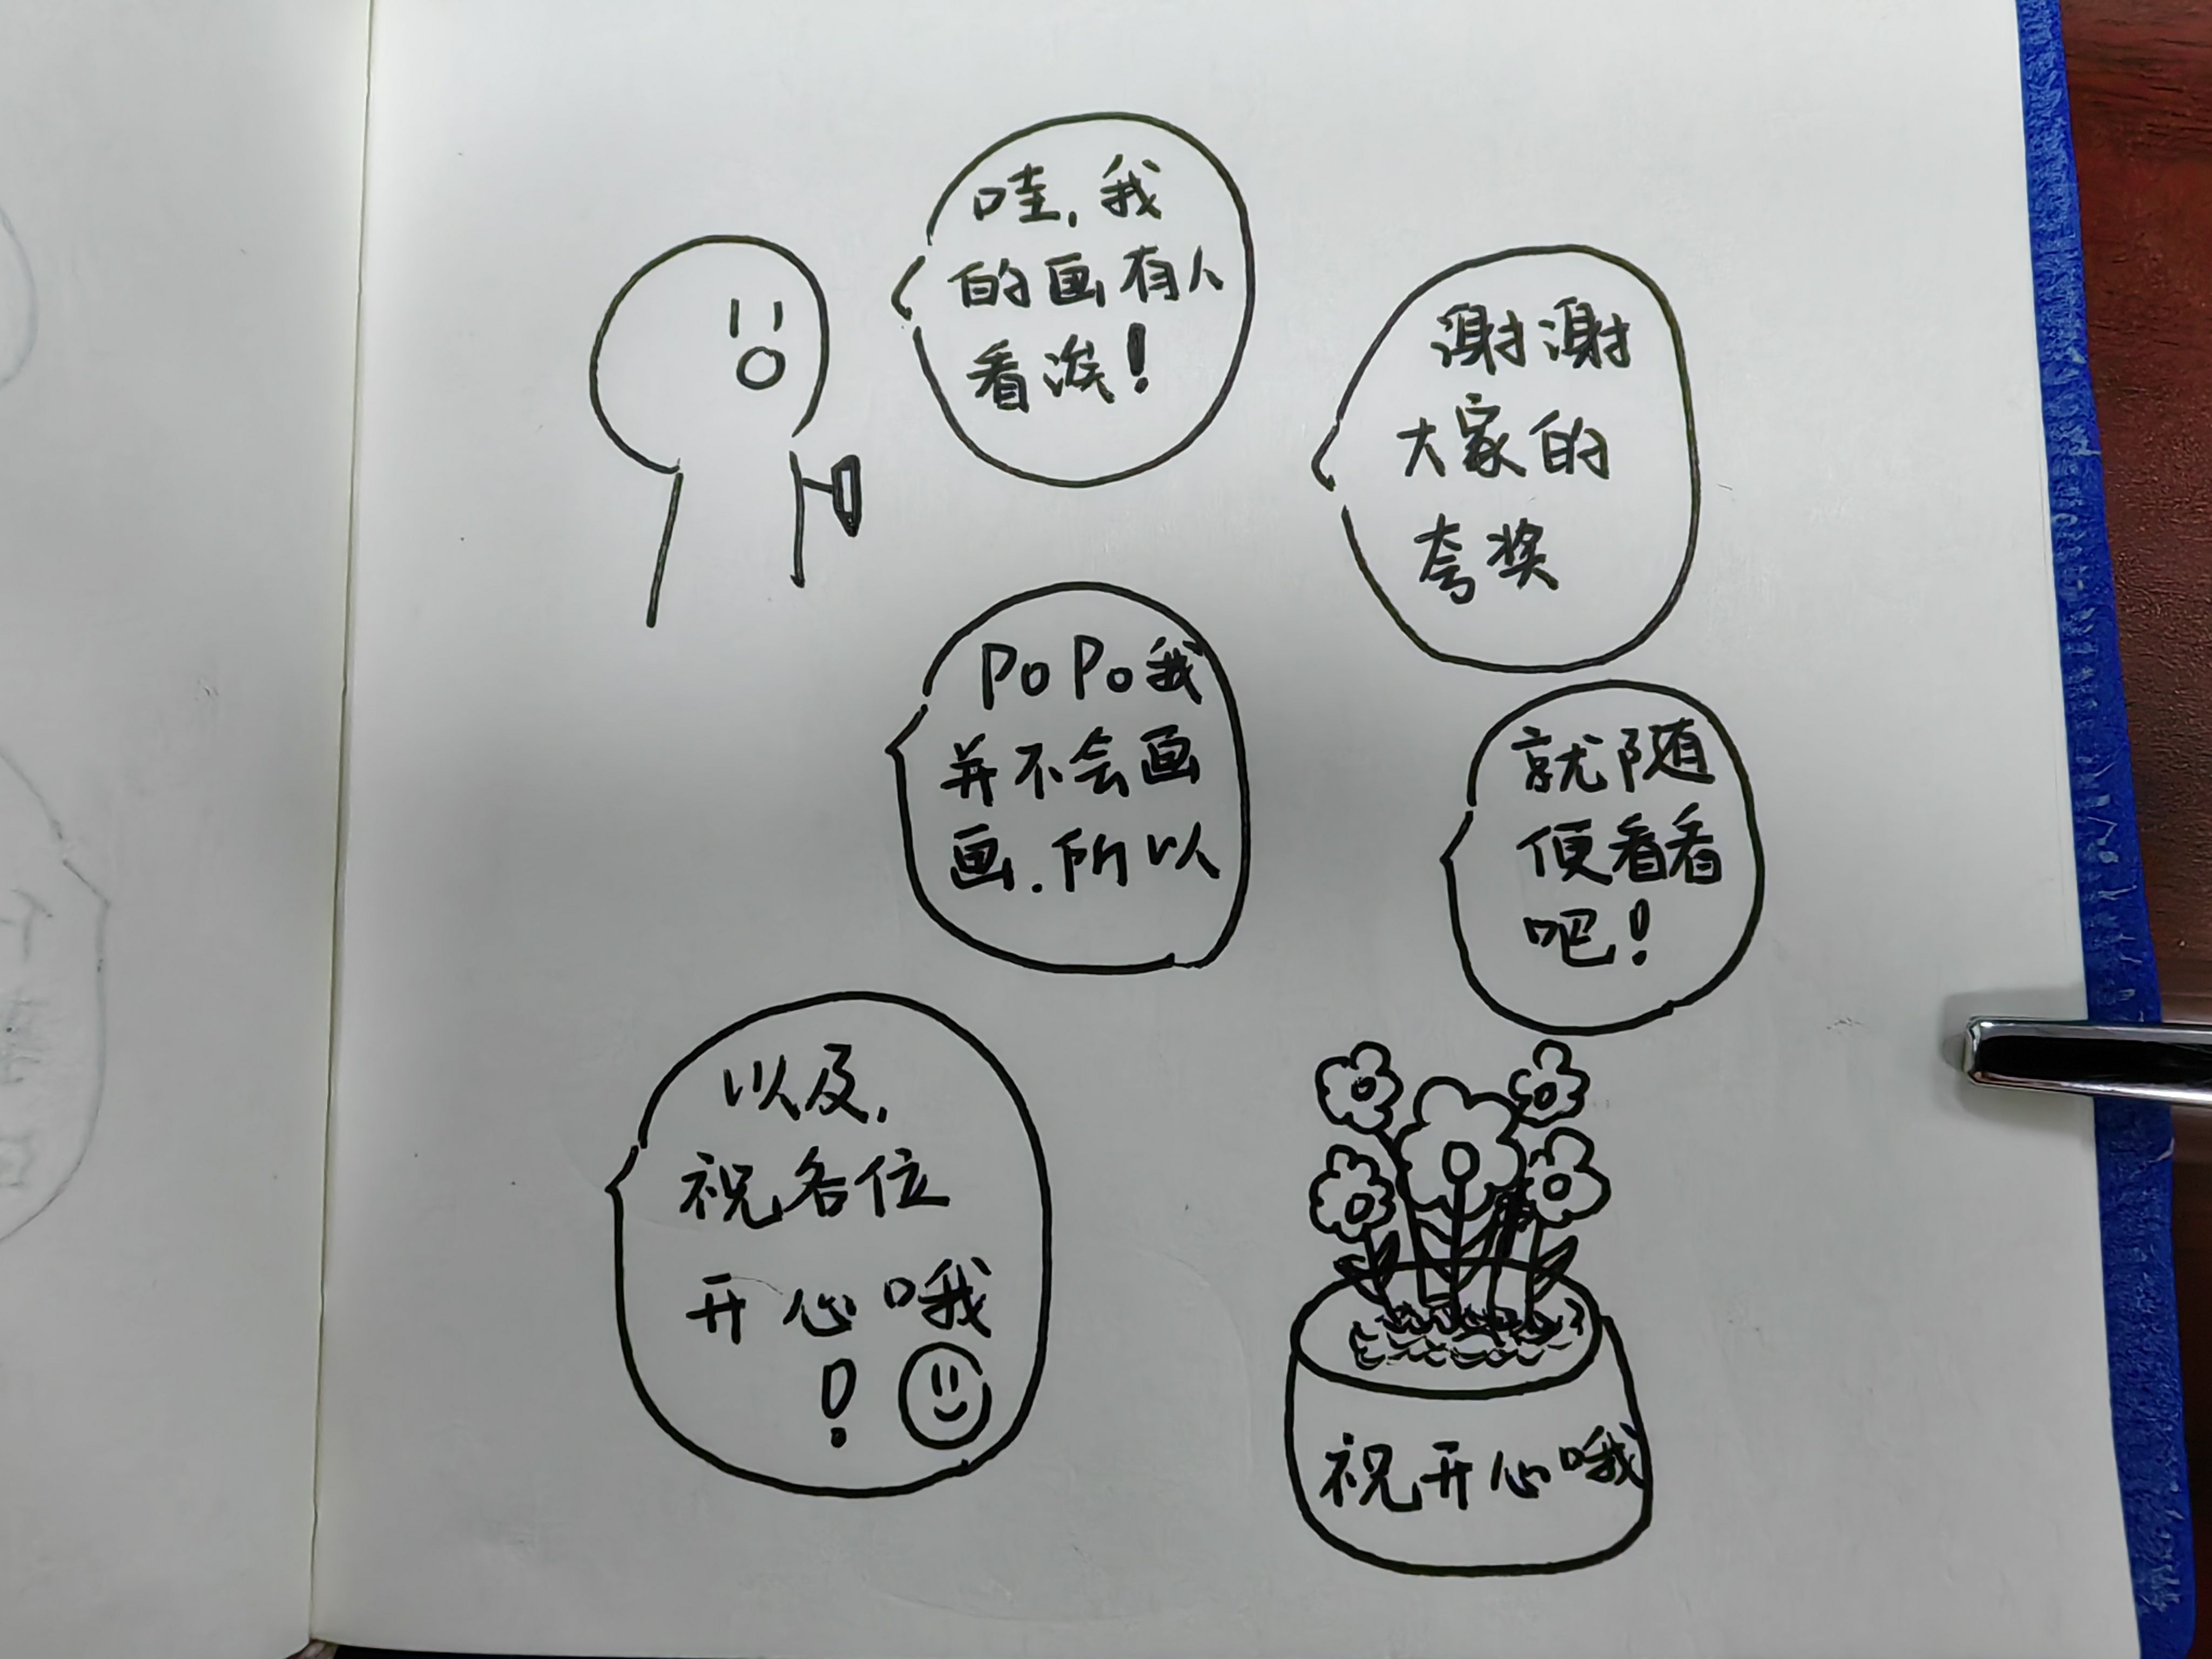 哇,我
的画有人
看诶!
谢谢
大家的
夸奖
PoPo我
并不会画
画.所以
就随
便看看
吧!
以及,
祝各位
开心哦
!
祝开心哦